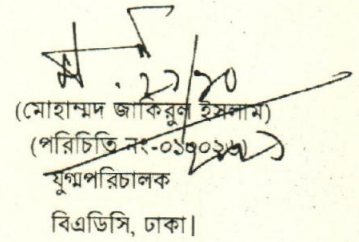 (মোহাম্মদ জাকিরুল ইসলাম)
(পরিচিতি নং-
যুগ্মপরিচালক
বিএডিসি, ঢাকা।